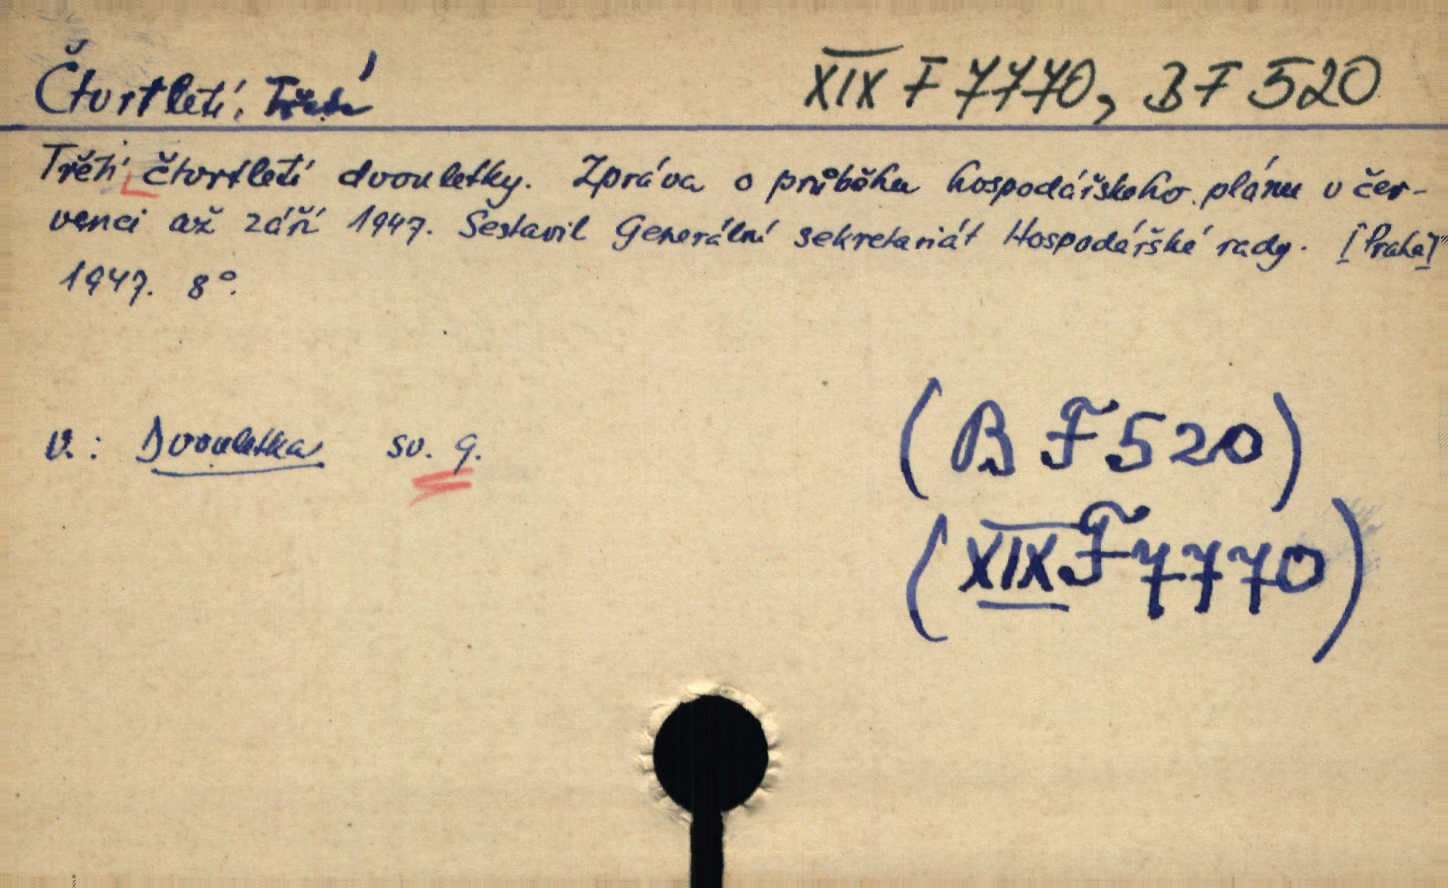 Čtvrtletí, Třetí XIX F 7770, B F 520
Třětí čtvrtletí dvouletky. Zpráva o průběhu hospodářského plánu v čer-
venci až září 1947. Sestavil Generální sekretariát Hospodářské rady. [Praha]
1947. 8°.
v.: Dvouletka sv. 9.
(B F 520)
(XIX F 7770)